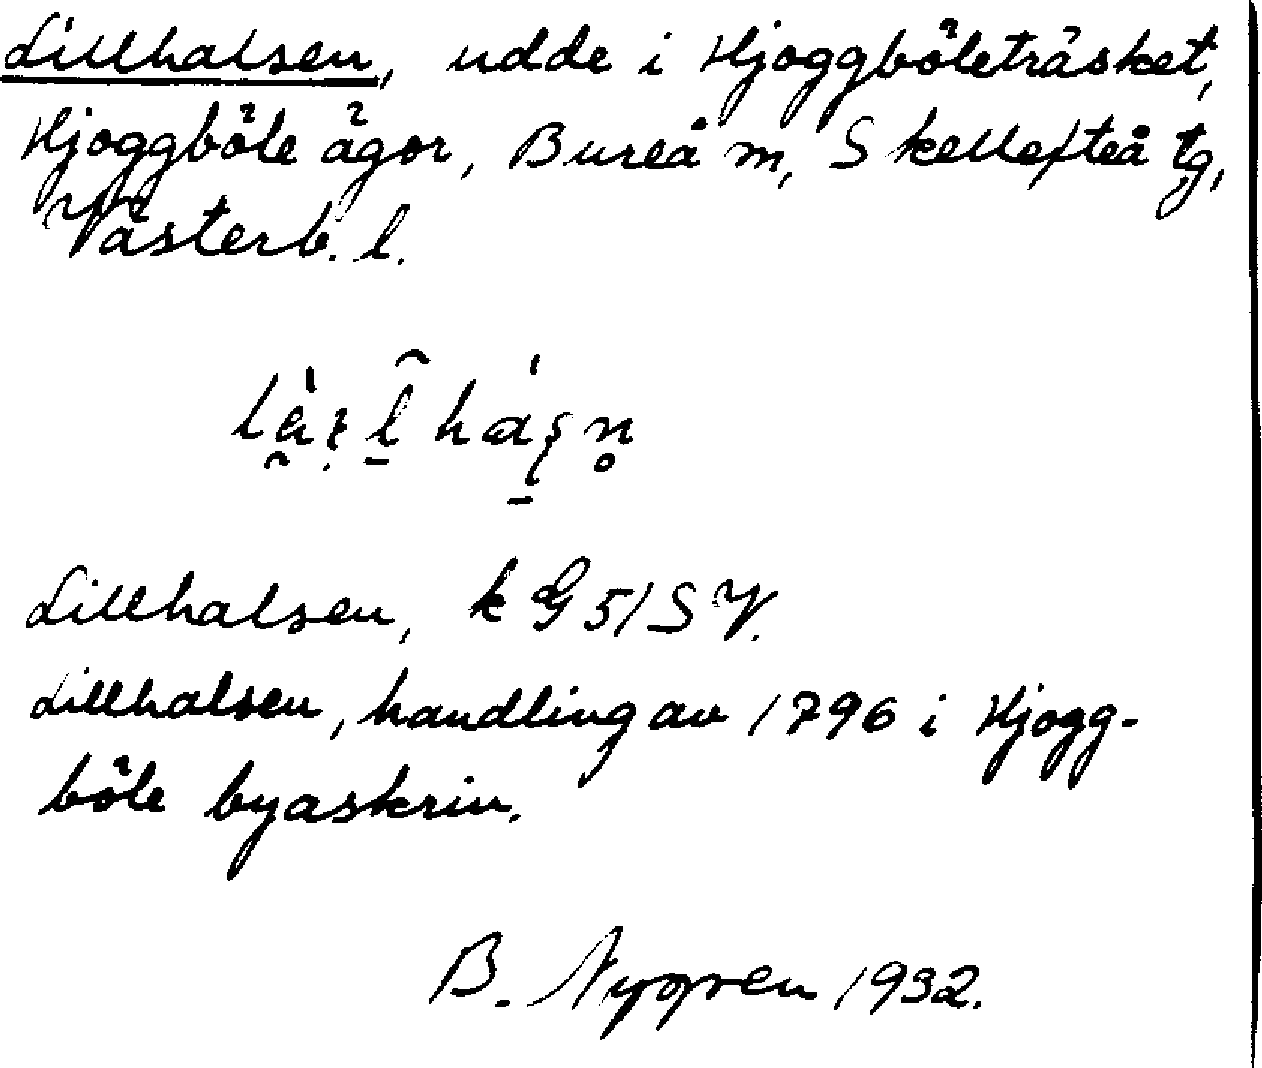 Lillhalsen, udde i Hjoggböleträsket,
Hjoggböle ägor, Bureå m, Skellefteå tg,
Västerb. l.
Lillhalsen, k G 51 SV.
Lillhalsen, handling av 1796 i Hjogg-
böle byaskrin.
B. Nygren 1932.